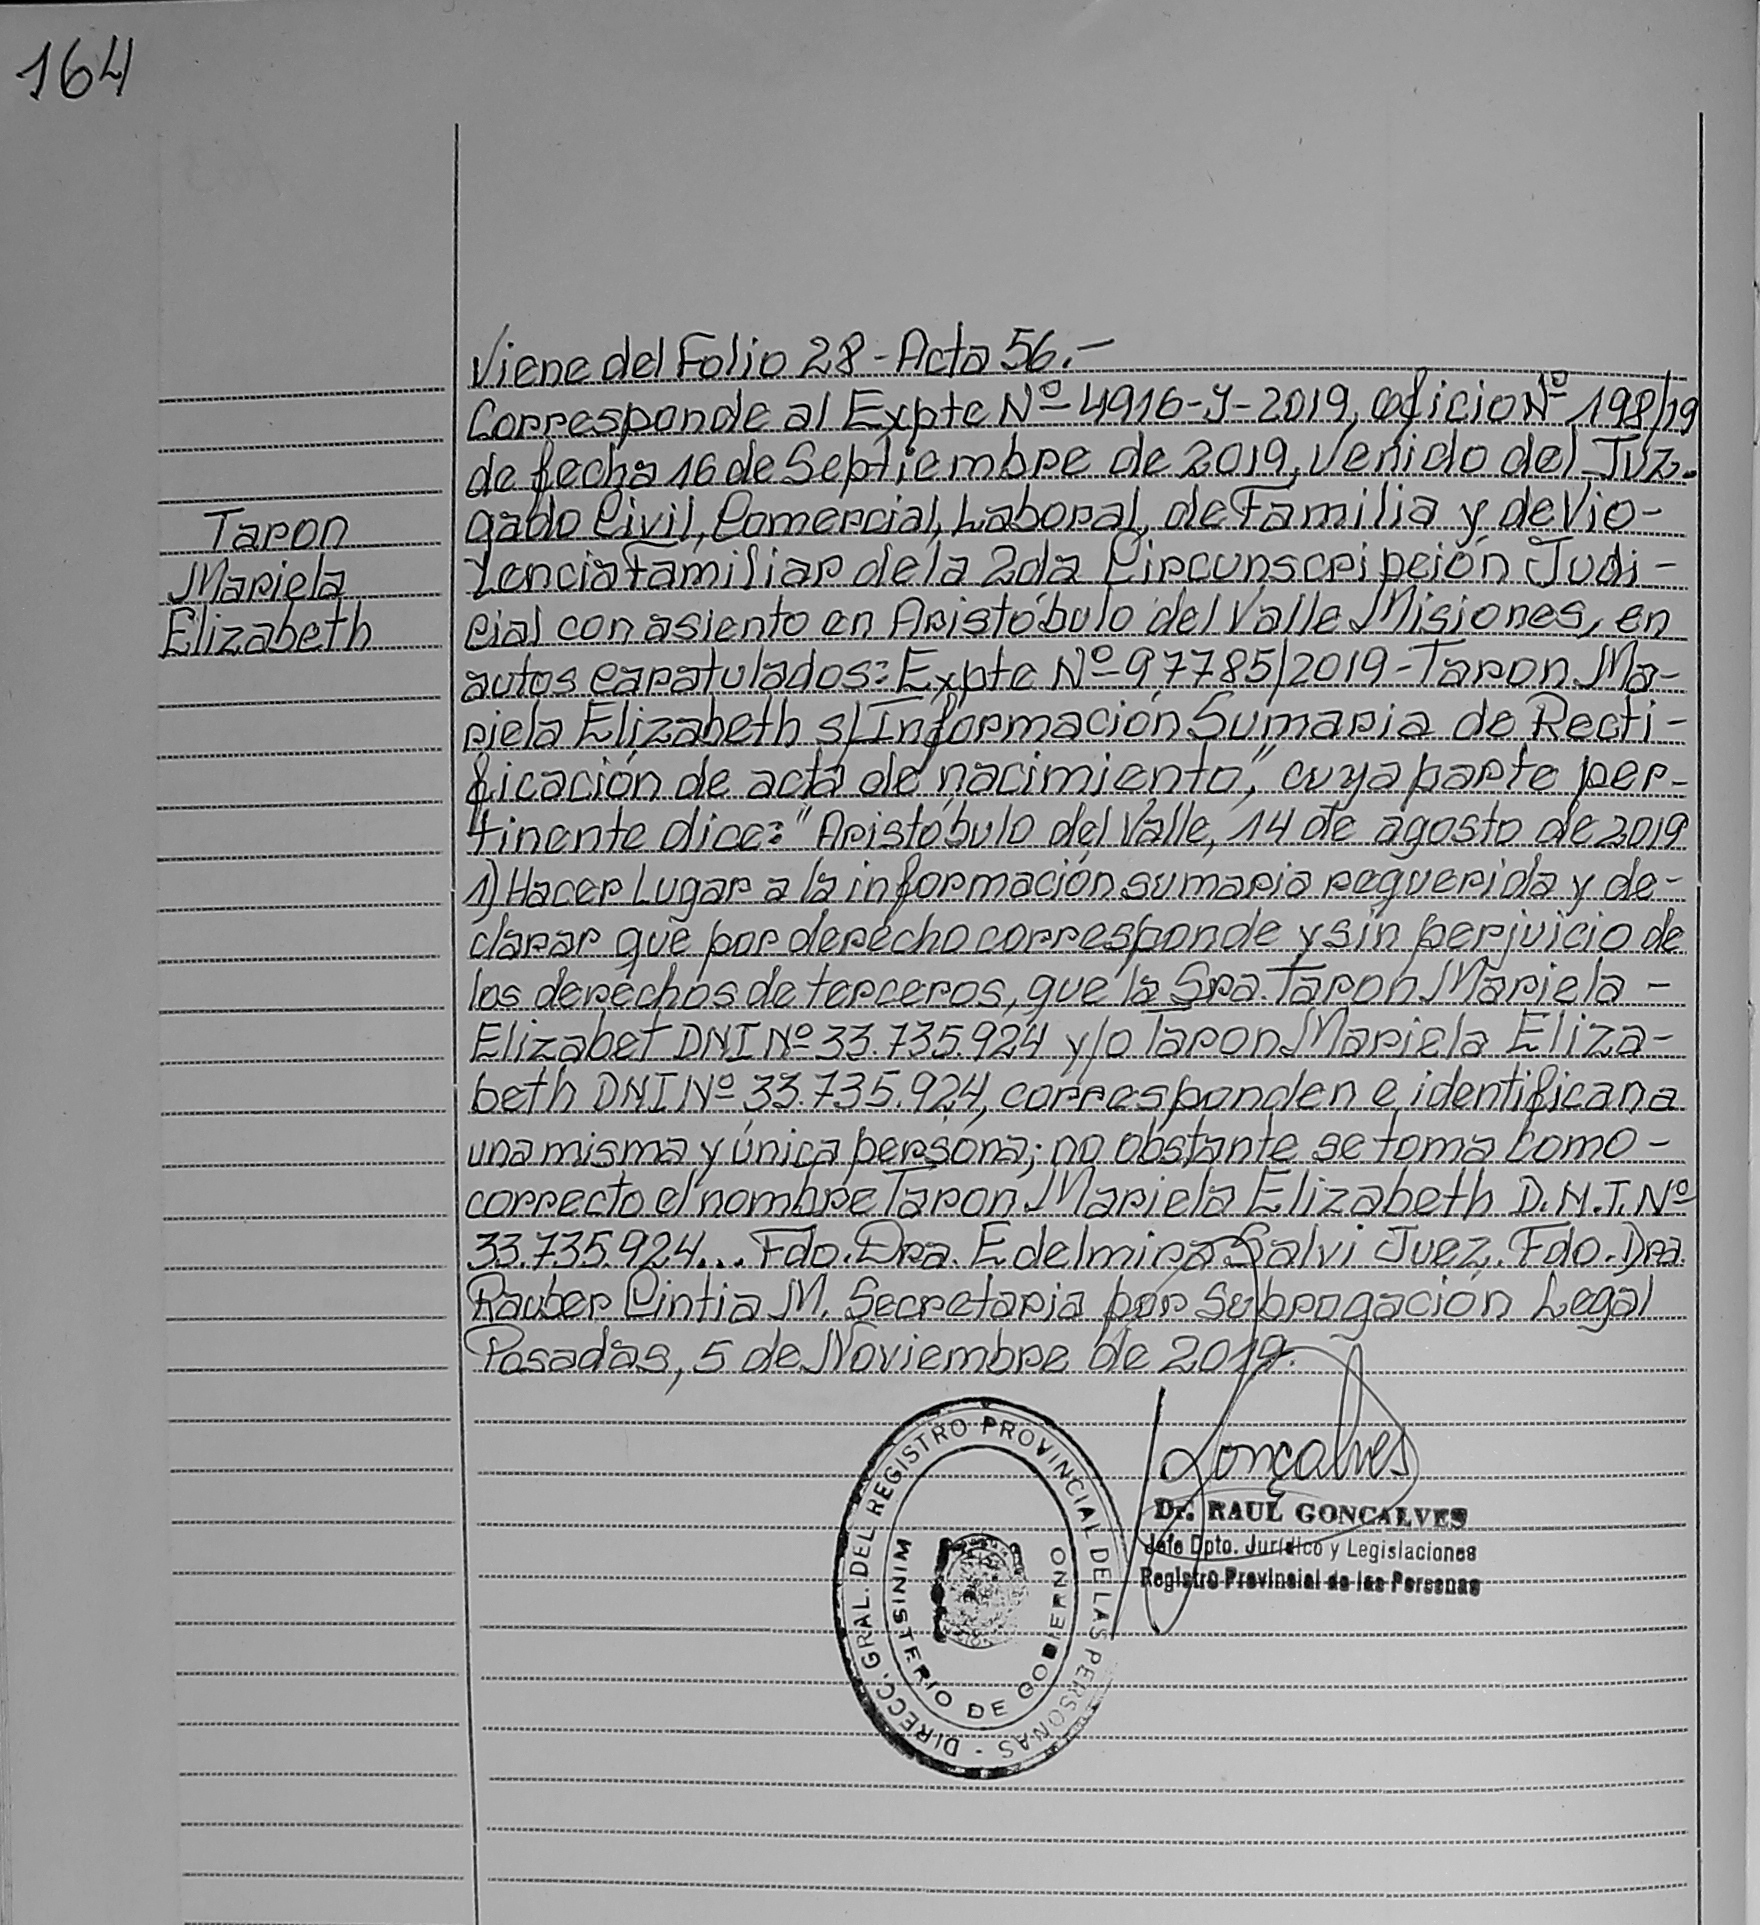 164
Viene del Folio 28 - Acta 56.-
Corresponde al Expte Nº 4916-Y-2019, oficio Nº 198/19
de fecha 16 de Septiembre de 2019, venido del Juz-
gado Civil, Comercial, Laboral, de Familia y de Vio-
lencia Familiar de la 2da Circunscripción Judi-
cial con asiento en Aristóbulo del Valle Misiones, en
autos caratulados: Expte Nº 97785/2019-Taron Ma-
riela Elizabeth s/Información Sumaria de Recti-
ficación de acta de nacimiento", cuya parte per-
tinente dice: "Aristóbulo del Valle, 14 de agosto de 2019
1) Hacer Lugar a la información sumaria requerida y de-
clarar que por derecho corresponde y sin perjuicio de
los derechos de terceros, que la Sra. Taron Mariela -
Elizabet DNI Nº 33.735.924 y/o Taron Mariela Eliza-
beth DNI Nº 33.735.924, corresponden e identifican a
una misma y única persona; no obstante se toma como -
correcto el nombre Taron Mariela Elizabeth D.N.I. Nº
33.735.924... Fdo. Dra. Edelmira Salvi Juez. Fdo. Dra.
Rauber Cintia M. Secretaria por Subrogación Legal
Posadas, 5 de Noviembre de 2019.
Taron
Mariela
Elizabeth
Gonçalves
Dr. RAUL GONCALVES
Jefe Dpto. Jurídico y Legislaciones
Registro Provincial de las Personas
DIRECC. GRAL. DEL REGISTRO PROVINCIAL DE LAS PERSONAS -
MINISTERIO DE GOBIERNO